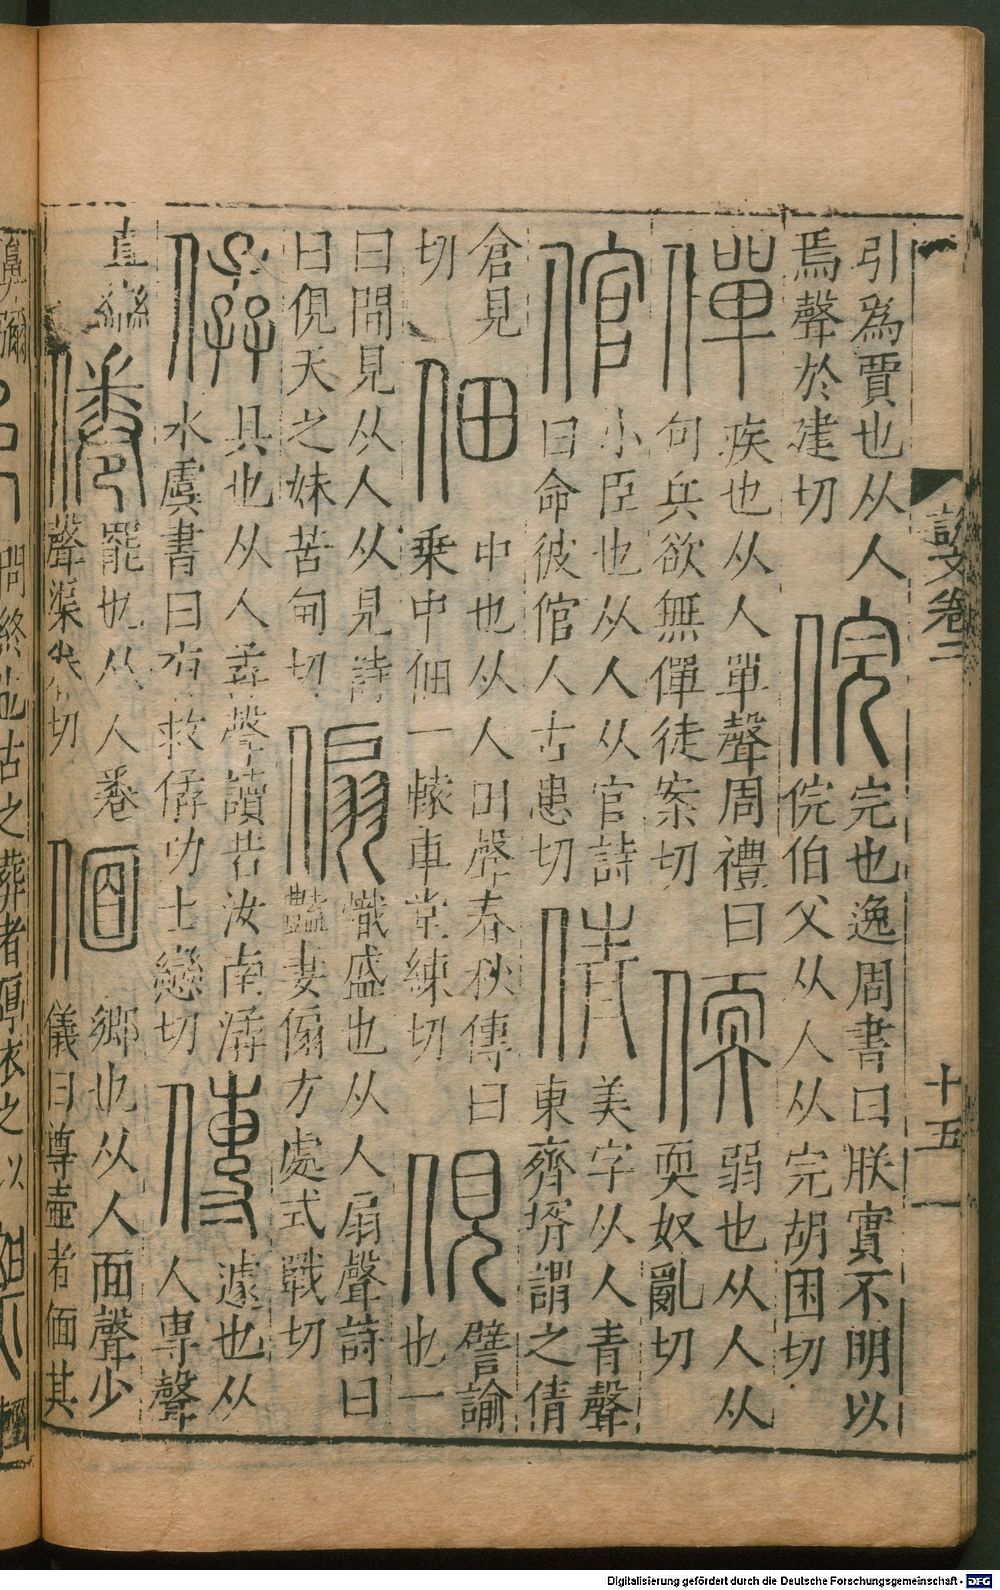 引爲賈也从人
焉聲於建切
俒
完也逸周書曰朕實不明以
俒伯父从人从完胡困切
僤
疾也从人單聲周禮曰
句兵欲無僤徒案切
偄
弱也从人从
耎奴亂切
倌
小臣也从人从官詩
曰命彼倌人古患切
倩
美字从人青聲
東齊壻謂之倩
倉見
切
佃
中也从人田聲春秋傳曰
乗中佃一轅車堂練切
俔
譬諭
也一
曰間見从人从見詩
曰俔天之妹苦甸切
傓
熾盛也从人扇聲詩曰
豔妻傓方處式戰切
僝
具也从人孨聲讀若汝南潺
水虞書曰㫄救僝功士戀切
傳
遽也从
人專聲
直戀
切
㑮
罷也从人卷
聲渠眷切
偭
鄉也从人面聲少
儀曰尊壺者偭其
説文卷二
十五
問終也古之葬者厚衣之以
Digitalisierung gefördert durch die Deutsche Forschungsgemeinschaft - DFG